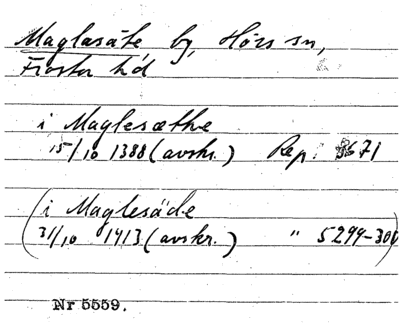 Maglasäte by, Hörs sn,
Frosta hd
i Maglesæthe
15/10 1388 (avskr.) Rep. 3671
(i Maglesäde
31/10 1413 (avskr.) " 5299-300)
Nr 5559.